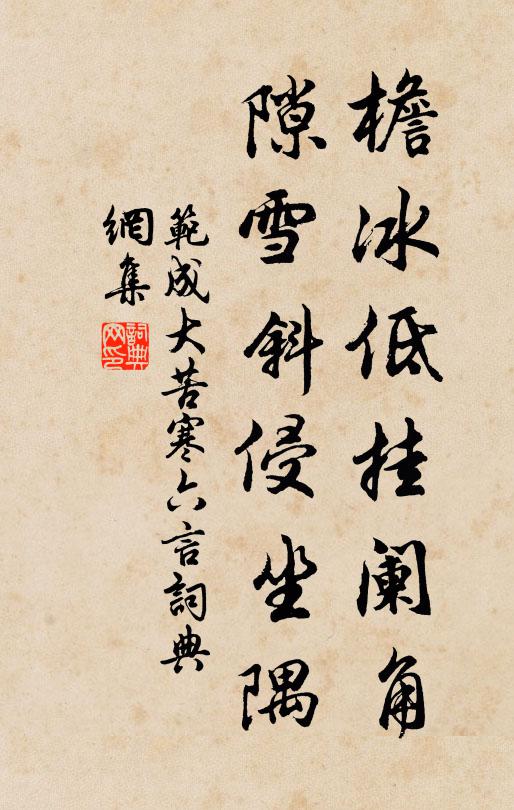 檐冰低挂阑角
隙雪斜侵坐隅
範成大苦寒六言詞典
網集
詞典
网印